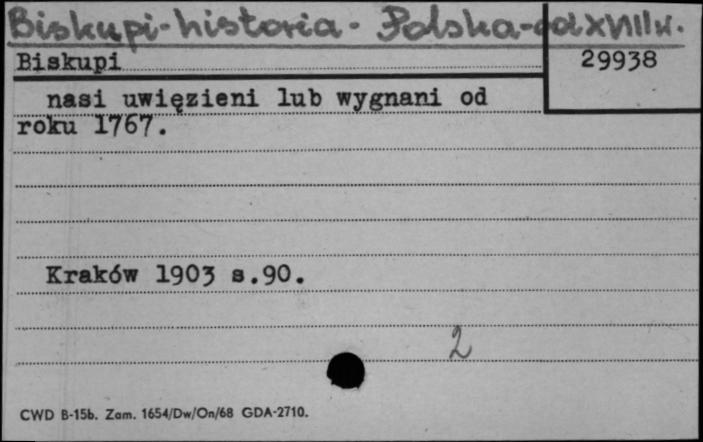 Biskupi-historia - Polska-od XVIII w.
Biskupi
29938
nasi uwięzieni lub wygnani od
roku 1767.
Kraków 1903 s.90.
2
CWD B-15b. Zam. 1654/Dw/On/68 GDA-2710.